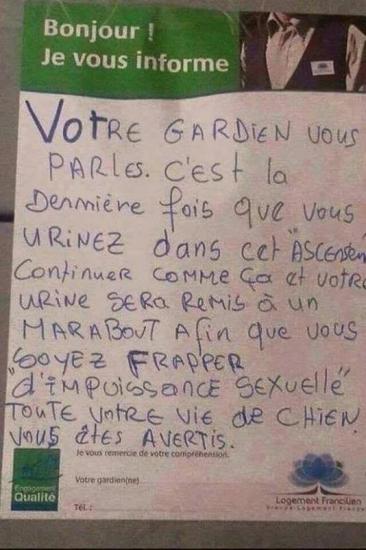 Bonjour !
Je vous informe
VOTRE GARDIEN VOUS
PARLES. C'EST la
Dernmière fois que vous
URINEZ dans cet "ASCENSEUR
Continuer COMME ça et votre
URINE SERA REMIS à un
MARABOUT Afin que vous
"SOYEZ FRAPPER
d'iMPUissance SEXUELLE"
TOUTE VOTRE VIE de CHIEN.
VOUS êtes AVERTIS.
Je vous remercie de votre compréhension.
Votre gardien(ne)
Tél. :
Engagement
Qualité
Logement Francilien